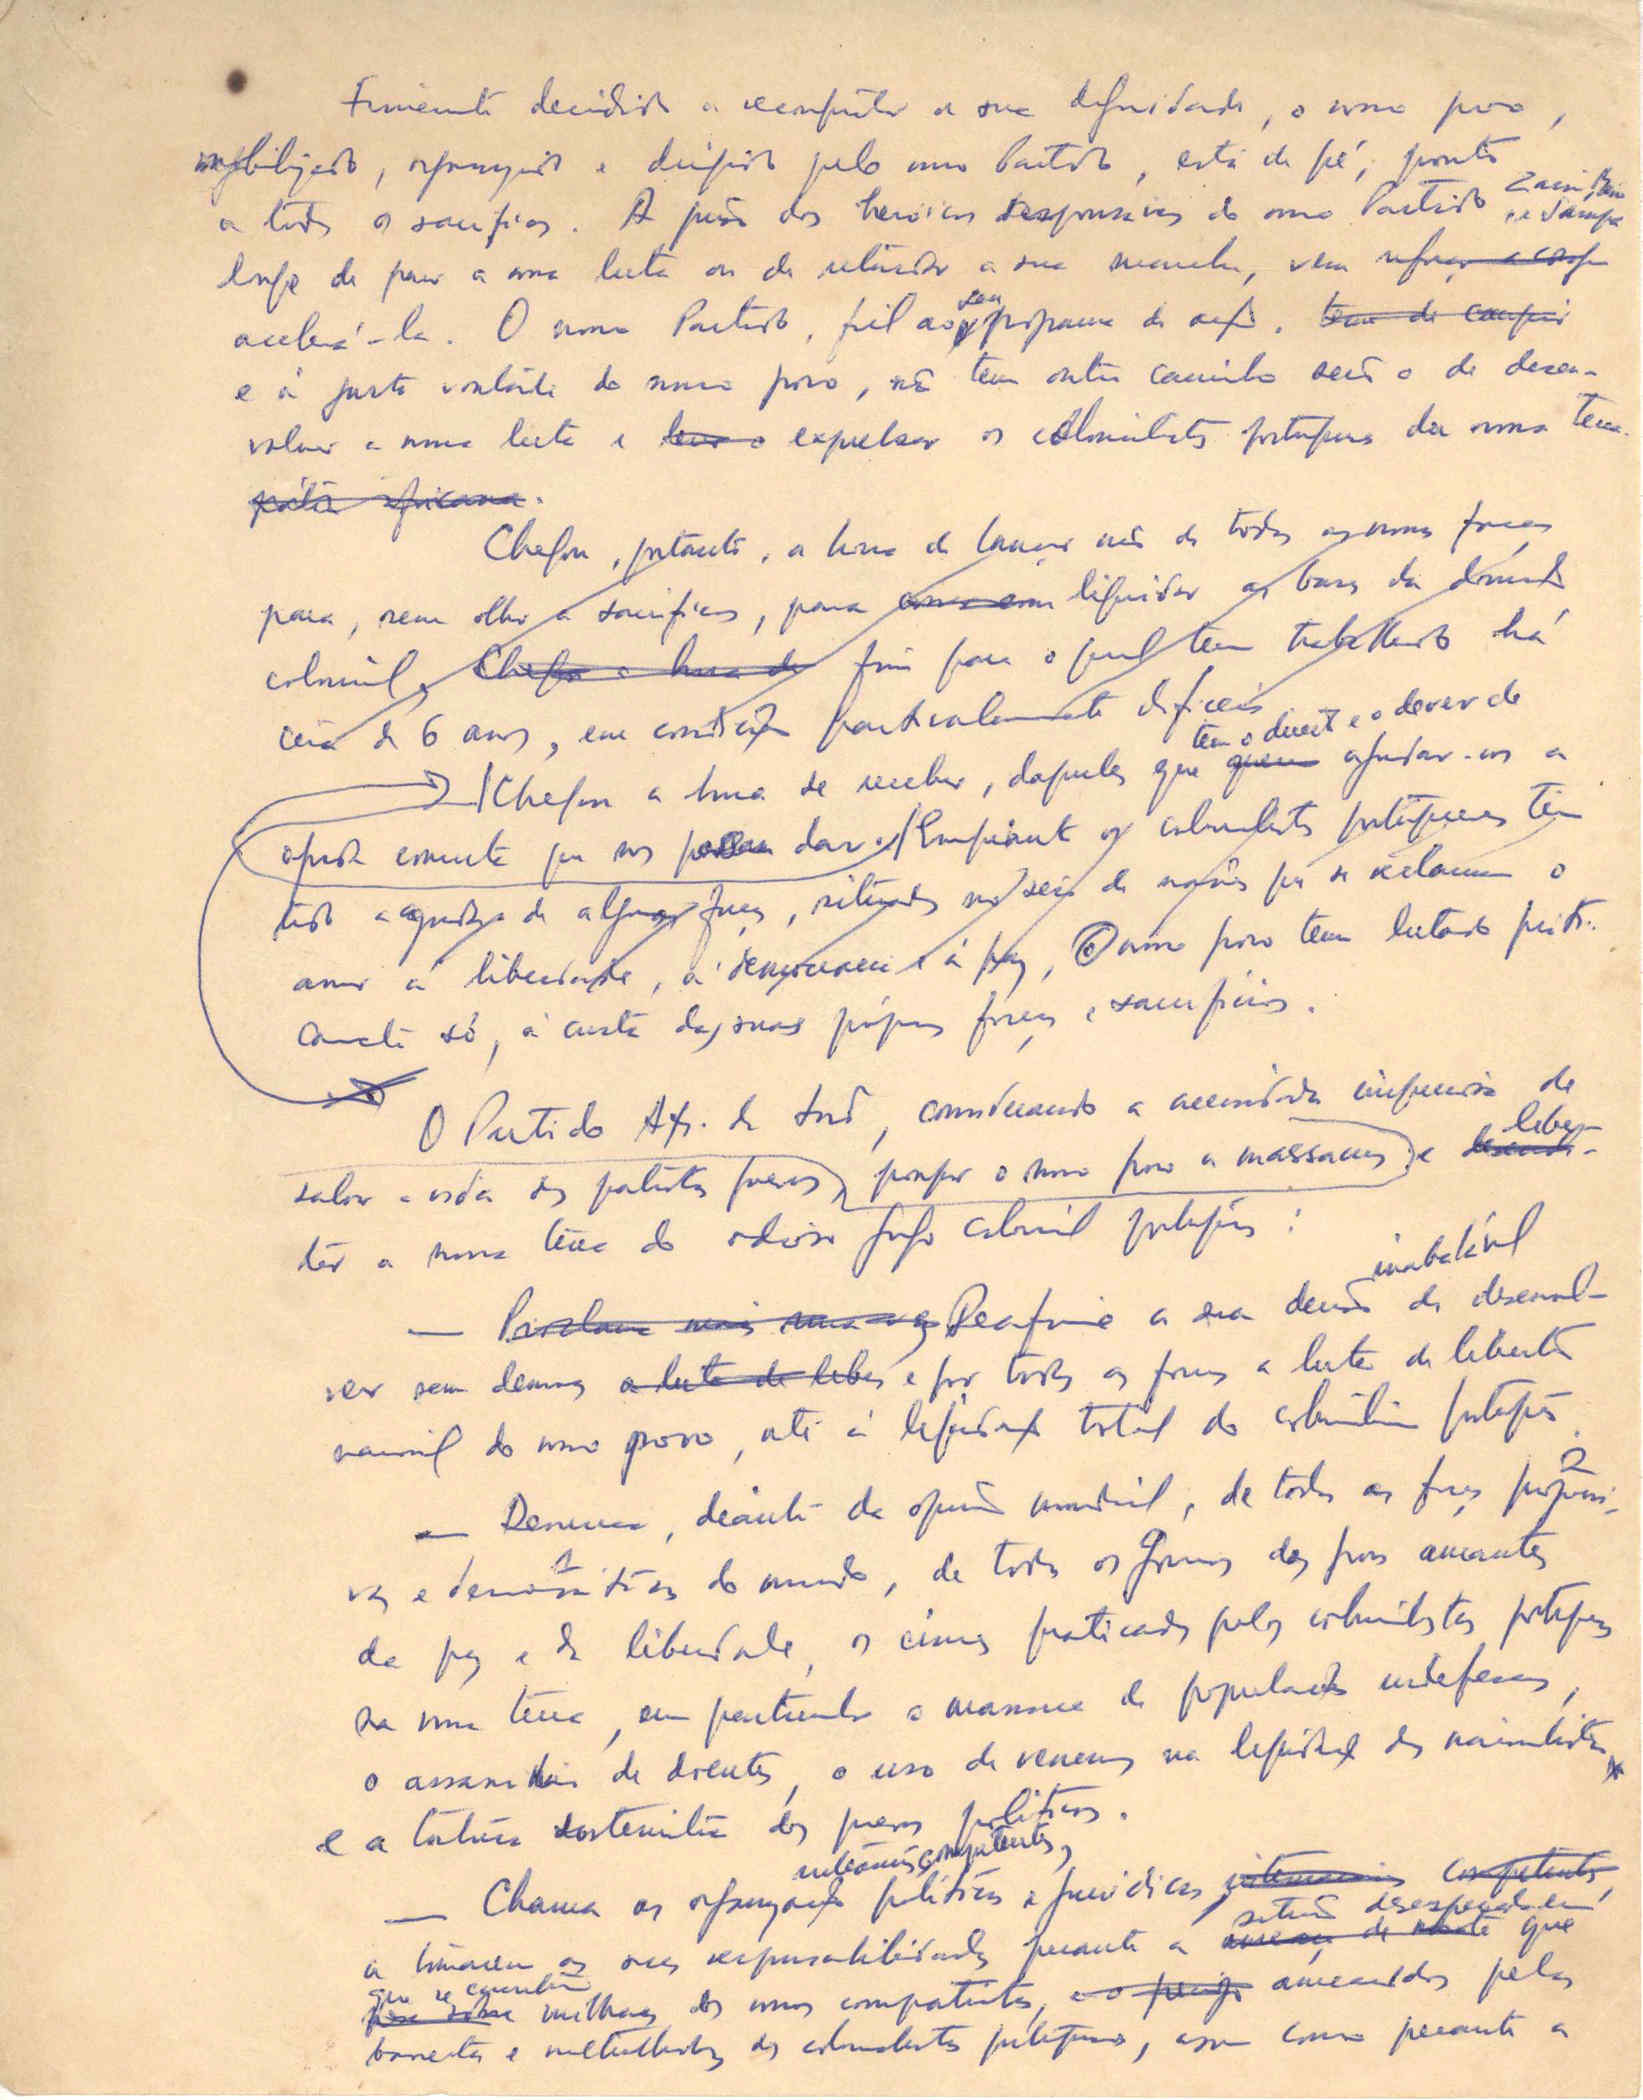 Firmemente decidido a reconquistar a sua dignidade, o nosso povo,
mobilizado, organizado e dirigido pelo nosso Partido, está de pé, pronto
a todos os sacrifícios. A prisão dos heróicos responsáveis do nosso Partido
longe de parar a nossa luta ou de retardar a sua marcha, vem
acelerá-la. O nosso Partido, fiel ao seu programa de acção,
e à justa vontade do nosso povo, não tem outro caminho senão o de desen-
volver a nossa luta e expulsar os colonialistas portugueses da nossa terra.
pátria africana.
Chegou, portanto, a hora de lançar mão de todas as nossas forças
para, sem olhar a sacrifícios, para liquidar as bases da dominação
colonial, Chegou a hora de fim para o qual tem trabalhado há
cerca de 6 anos, em condições particularmente difíceis
tem o direito e o dever de
Chegou a hora de receber, daqueles que ajudar-nos a
ajuda concreta que nos possam dar. Enquanto os colonialistas portugueses têm
tido a ajuda de algumas forças, situadas no seio de nações que se reclamam o
amor à liberdade, à democracia e à paz, o nosso povo tem lutado prati-
camente só, à custa das suas próprias forças e sacrifícios.
O Partido Afr. da Ind, considerando a necessidade imperiosa de
salvar a vida dos patriotas presos, poupar o nosso povo a massacres e liber-
tar a nossa terra do odioso jugo colonial português:
inabalável
— Proclama mais uma vez Reafirma a sua decisão de desenvol-
ver sem demora a luta de liber e por todas as forças a luta de libertação
nacional do nosso povo, até à liquidação total do colonialismo português.
— Denuncia, diante da opinião mundial, de todas as forças progressi-
vas e democráticas do mundo, de todos os governos dos povos amantes
da paz e da liberdade, os crimes praticados pelos colonialistas portugueses
na nossa terra, em particular o massacre de populações indefesas,
o assassínio de doentes, o uso de venenos na liquidação dos nacionalistas
e a tortura dos presos políticos.
competentes,
— Chama as organizações políticas e jurídicas internacionais competentes,
situação desesperada em
a tomarem as suas responsabilidades perante a ameaça de morte que
que se encontram
pesa sobre milhares dos nossos compatriotas, e o perigo ameaçados pelas
e metralhadoras dos colonialistas portugueses, assim como perante a